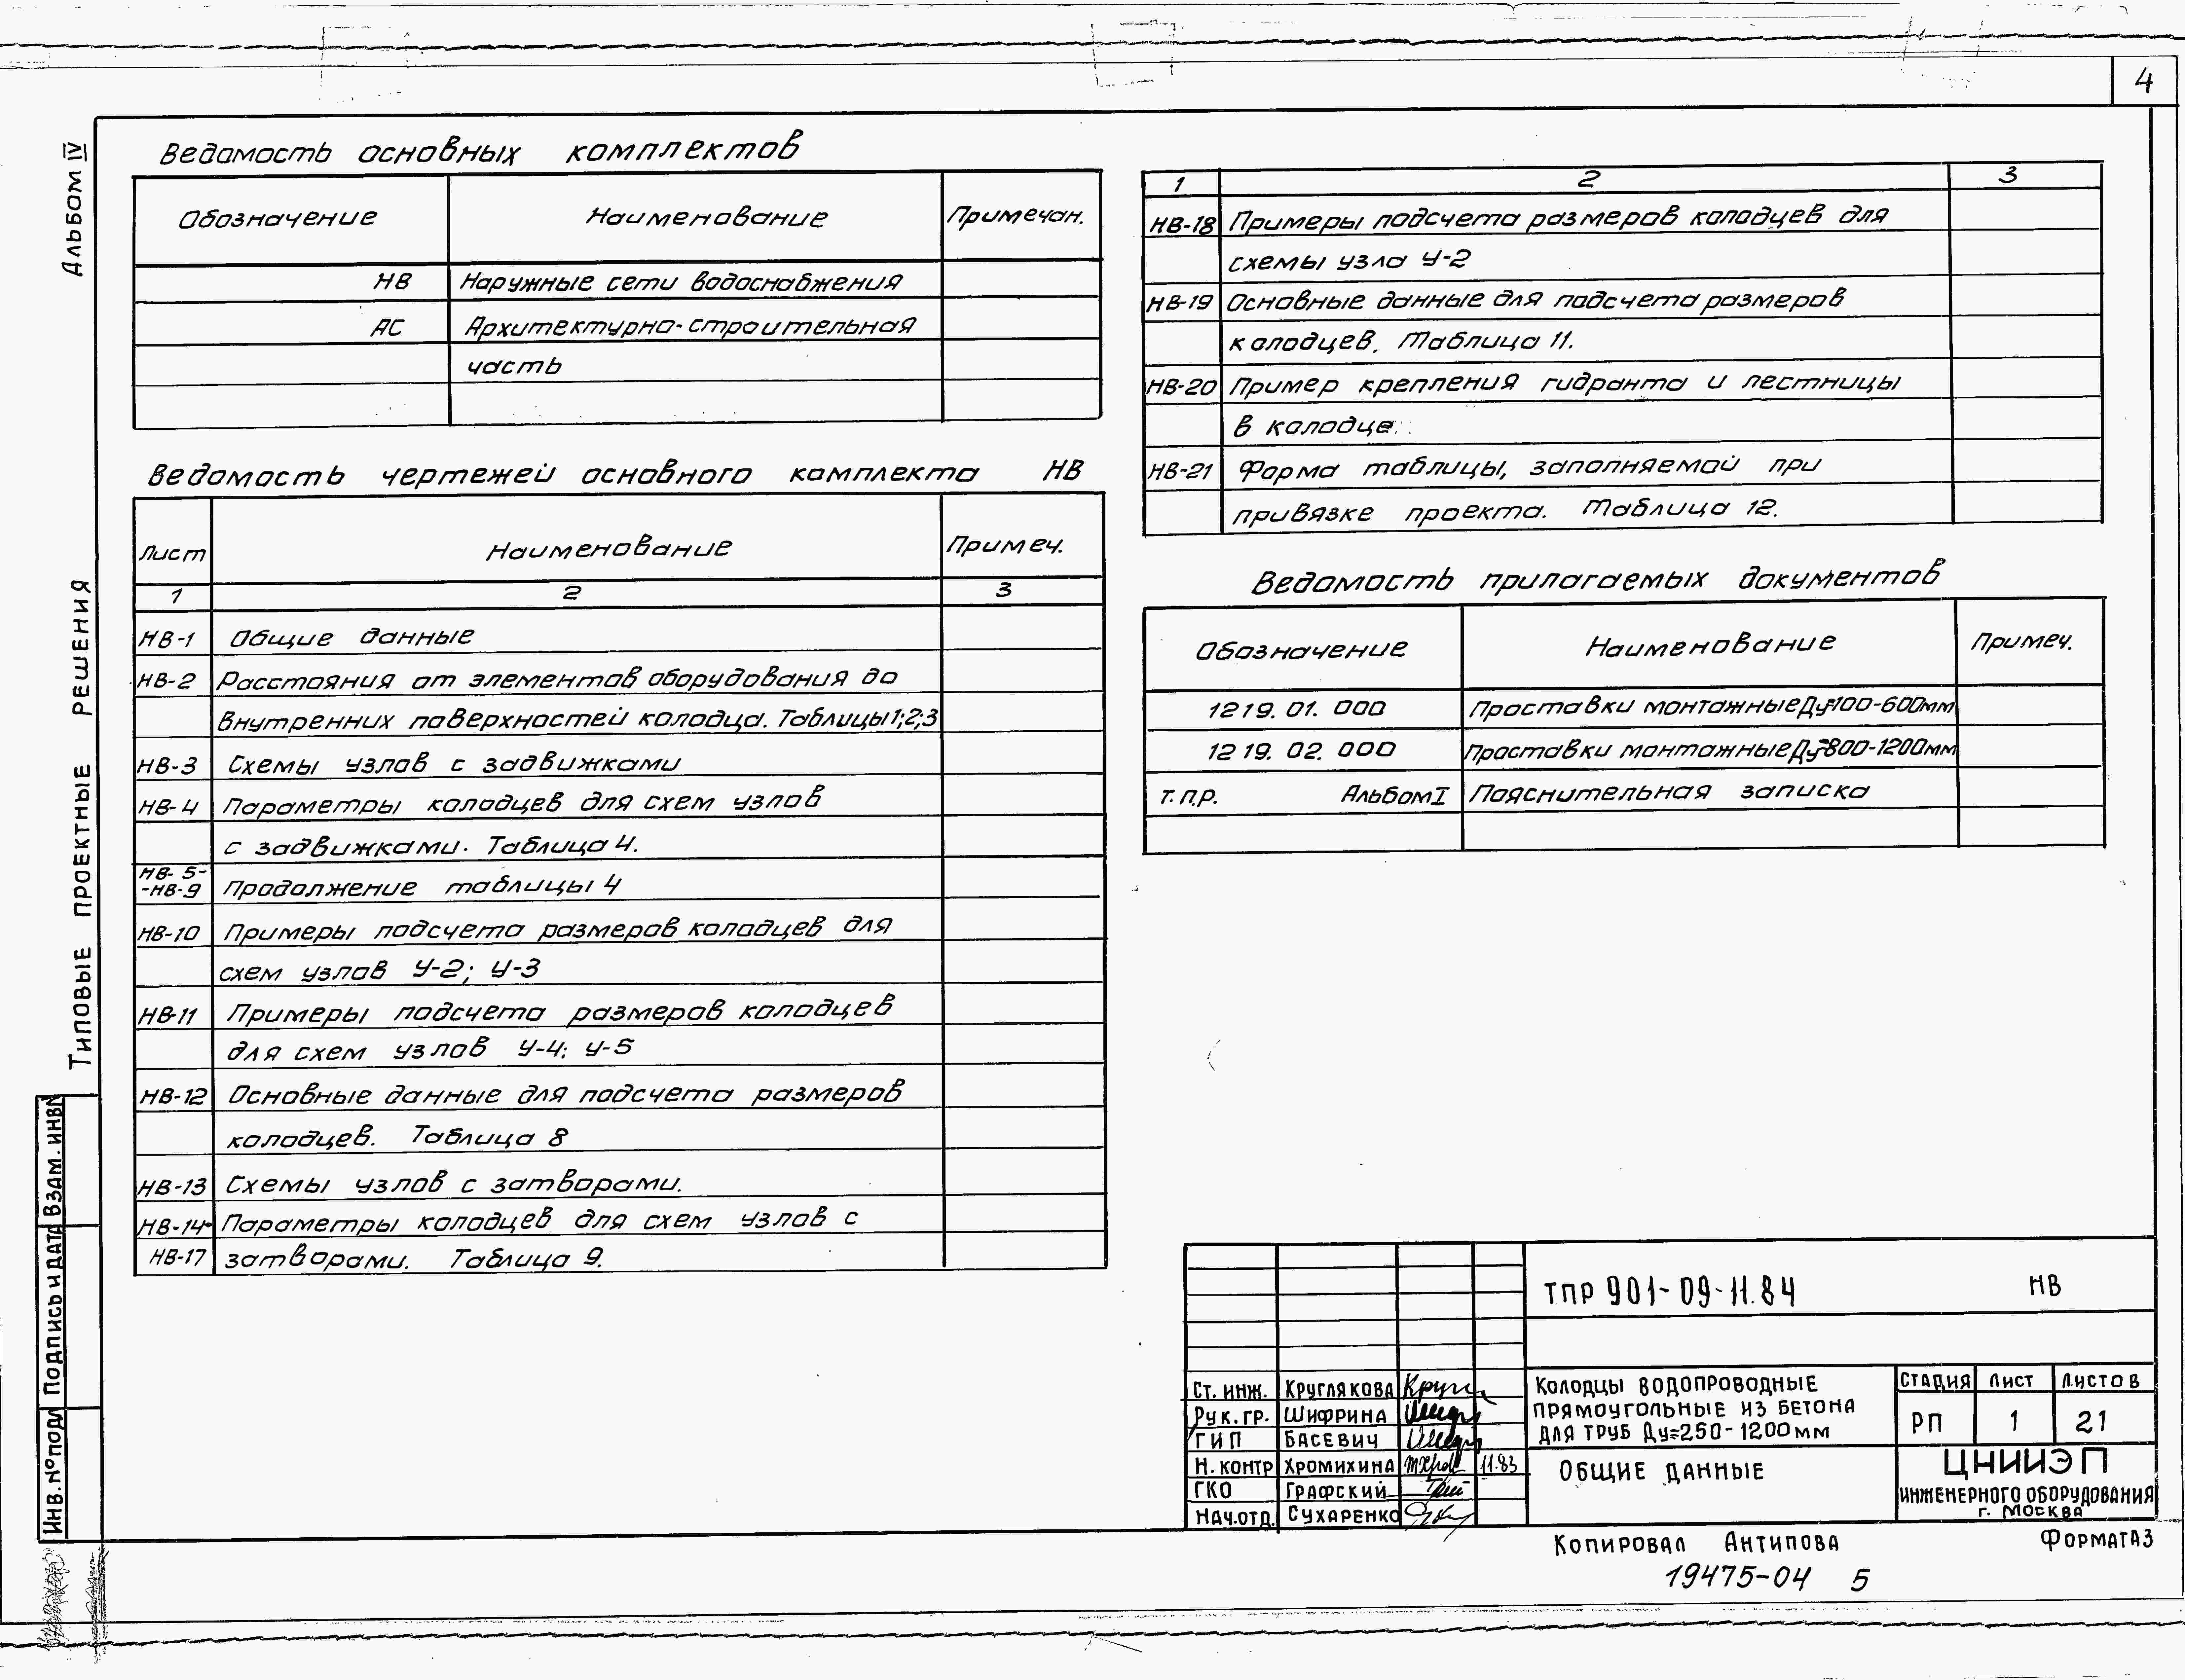 4
Альбом IV
Типовые проектные решения
Ведомость основных комплектов
Обозначение Наименование Примечан.
НВ Наружные сети водоснабжения
АС Архитектурно-строительная
часть
Ведомость чертежей основного комплекта НВ
Лист Наименование Примеч.
1 2 3
НВ-1 Общие данные
НВ-2 Расстояния от элементов оборудования до
внутренних поверхностей колодца. Таблицы 1;2;3
НВ-3 Схемы узлов с задвижками
НВ-4 Параметры колодцев для схем узлов
с задвижками. Таблица 4.
НВ-5-
-НВ-9 Продолжение таблицы 4
НВ-10 Примеры подсчета размеров колодцев для
схем узлов У-2; У-3
НВ-11 Примеры подсчета размеров колодцев
для схем узлов У-4; У-5
НВ-12 Основные данные для подсчета размеров
колодцев. Таблица 8
НВ-13 Схемы узлов с затворами.
НВ-14- Параметры колодцев для схем узлов с
НВ-17 затворами. Таблица 9.
1 2 3
НВ-18 Примеры подсчета размеров колодцев для
схемы узла У-2
НВ-19 Основные данные для подсчета размеров
колодцев. Таблица 11.
НВ-20 Пример крепления гидранта и лестницы
в колодце
НВ-21 Форма таблицы, заполняемой при
привязке проекта. Таблица 12.
Ведомость прилагаемых документов
Обозначение Наименование Примеч.
1219. 01. 000 Проставки монтажные Ду=100-600мм
1219. 02. 000 Проставки монтажные Ду=800-1200мм
т.п.р. Альбом I Пояснительная записка
ТПР 901-09-11.84 НВ
Ст. инж. Круглякова
Рук. гр. Шифрина
ГИП Басевич
Н. контр Хромихина 11.83
ГКО Графский
Нач.отд. Сухаренко
Колодцы водопроводные
прямоугольные из бетона
для труб Ду=250-1200мм
Стадия Лист Листов
РП 1 21
Общие данные
ЦНИИЭП
инженерного оборудования
г. Москва
Инв. № подл Подпись и дата Взам. инв №
Копировал Антипова Формат А3
19475-04 5